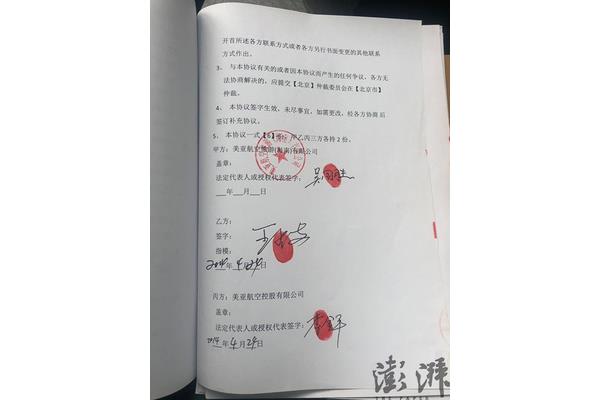 开首所述各方联系方式或者各方另行书面变更的其他联系
方式作出。
3、 与本协议有关的或者因本协议而产生的任何争议，各方无
法协商解决的，应提交【北京】仲裁委员会在【北京市】
仲裁。
4、 本协议签字生效，未尽事宜，如需更改，经各方协商后
签订补充协议。
5、 本协议一式【6】份，甲乙丙三方各持2份。
甲方：美亚航空旅游(海南)有限公司
盖章：
法定代表人或授权代表签字：
___年___月___日
乙方：
签字：
指模：
年4月29日
丙方：美亚航空控股有限公司
盖章：
法定代表人或授权代表签字：
2014年4月29日
澎湃